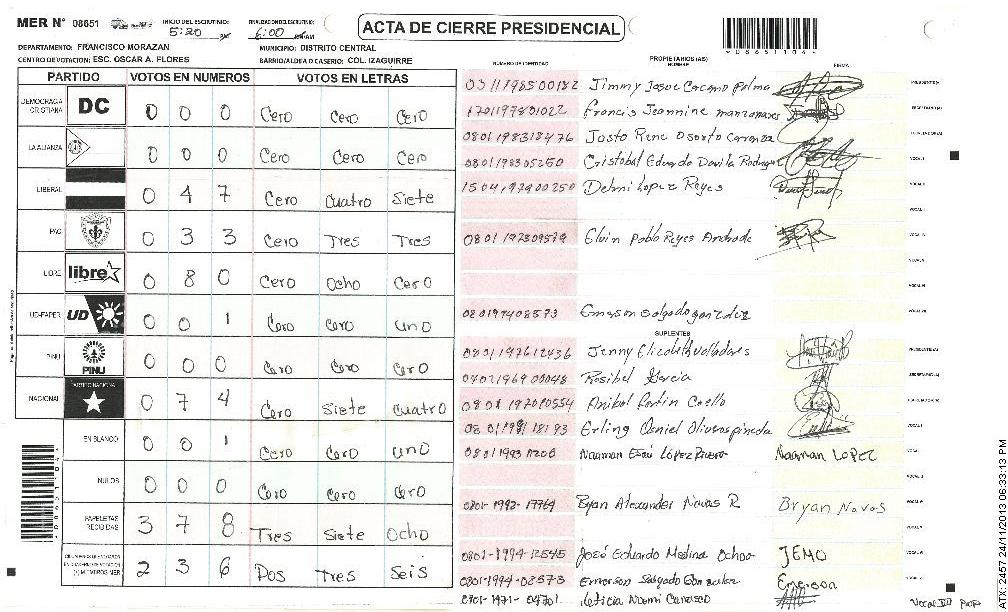 MER N° 08651
INICIO DEL ESCRUTINIO: 5:20
FINALIZACION DEL ESCRUTINIO: 6:00
ACTA DE CIERRE PRESIDENCIAL
DEPARTAMENTO: FRANCISCO MORAZAN
MUNICIPIO: DISTRITO CENTRAL
CENTRO DE VOTACION: ESC. OSCAR A. FLORES
BARRIO/ALDEA O CASERIO: COL. IZAGUIRRE
PARTIDO VOTOS EN NUMEROS VOTOS EN LETRAS
NUMERO DE IDENTIDAD PROPIETARIOS (AS) NOMBRE FIRMA
DEMOCRACIA CRISTIANA DC 0 0 0 Cero Cero Cero
LA ALIANZA 0 0 0 Cero Cero Cero
LIBERAL 0 4 7 Cero Cuatro Siete
PAC 0 3 3 Cero Tres Tres
LIBRE libre 0 8 0 Cero Ocho Cero
UD-FAPER UD 0 0 1 Cero Cero uno
PINU PINU 0 0 0 Cero Cero Cero
NACIONAL PARTIDO NACIONAL 0 7 4 Cero Siete Cuatro
EN BLANCO 0 0 1 Cero Cero uno
NULOS 0 0 0 Cero Cero Cero
PAPELETAS RECIBIDAS 3 7 8 Tres Siete Ocho
2 3 6 Dos Tres Seis
Jimmy Josue Carcamo Palma
Francis Jeannine manzanares
Justo Rene Osorto Carranza
Cristobal Eduardo Davila Rodriguez
Delmi Lopez Reyes
Elvin Pablo Reyes Andrade
0801197408573 Emerson Salgado gonzalez
SUPLENTES
0801197612436 Jenny Elizabeth Valladares
Rosibel Garcia
Anibal Fortin Coello
Erling Daniel
Naaman López
0801-1992-17764 Bryan Alexander Navas R Bryan Navas
0801-1994-12545 José Eduardo Medina Ochoa JEMO
0801-1974-08573 Emerson Salgado Gonzalez Emerson
Leticia Noemi Canaseo
2457 24/11/2013 06:33:13 PM